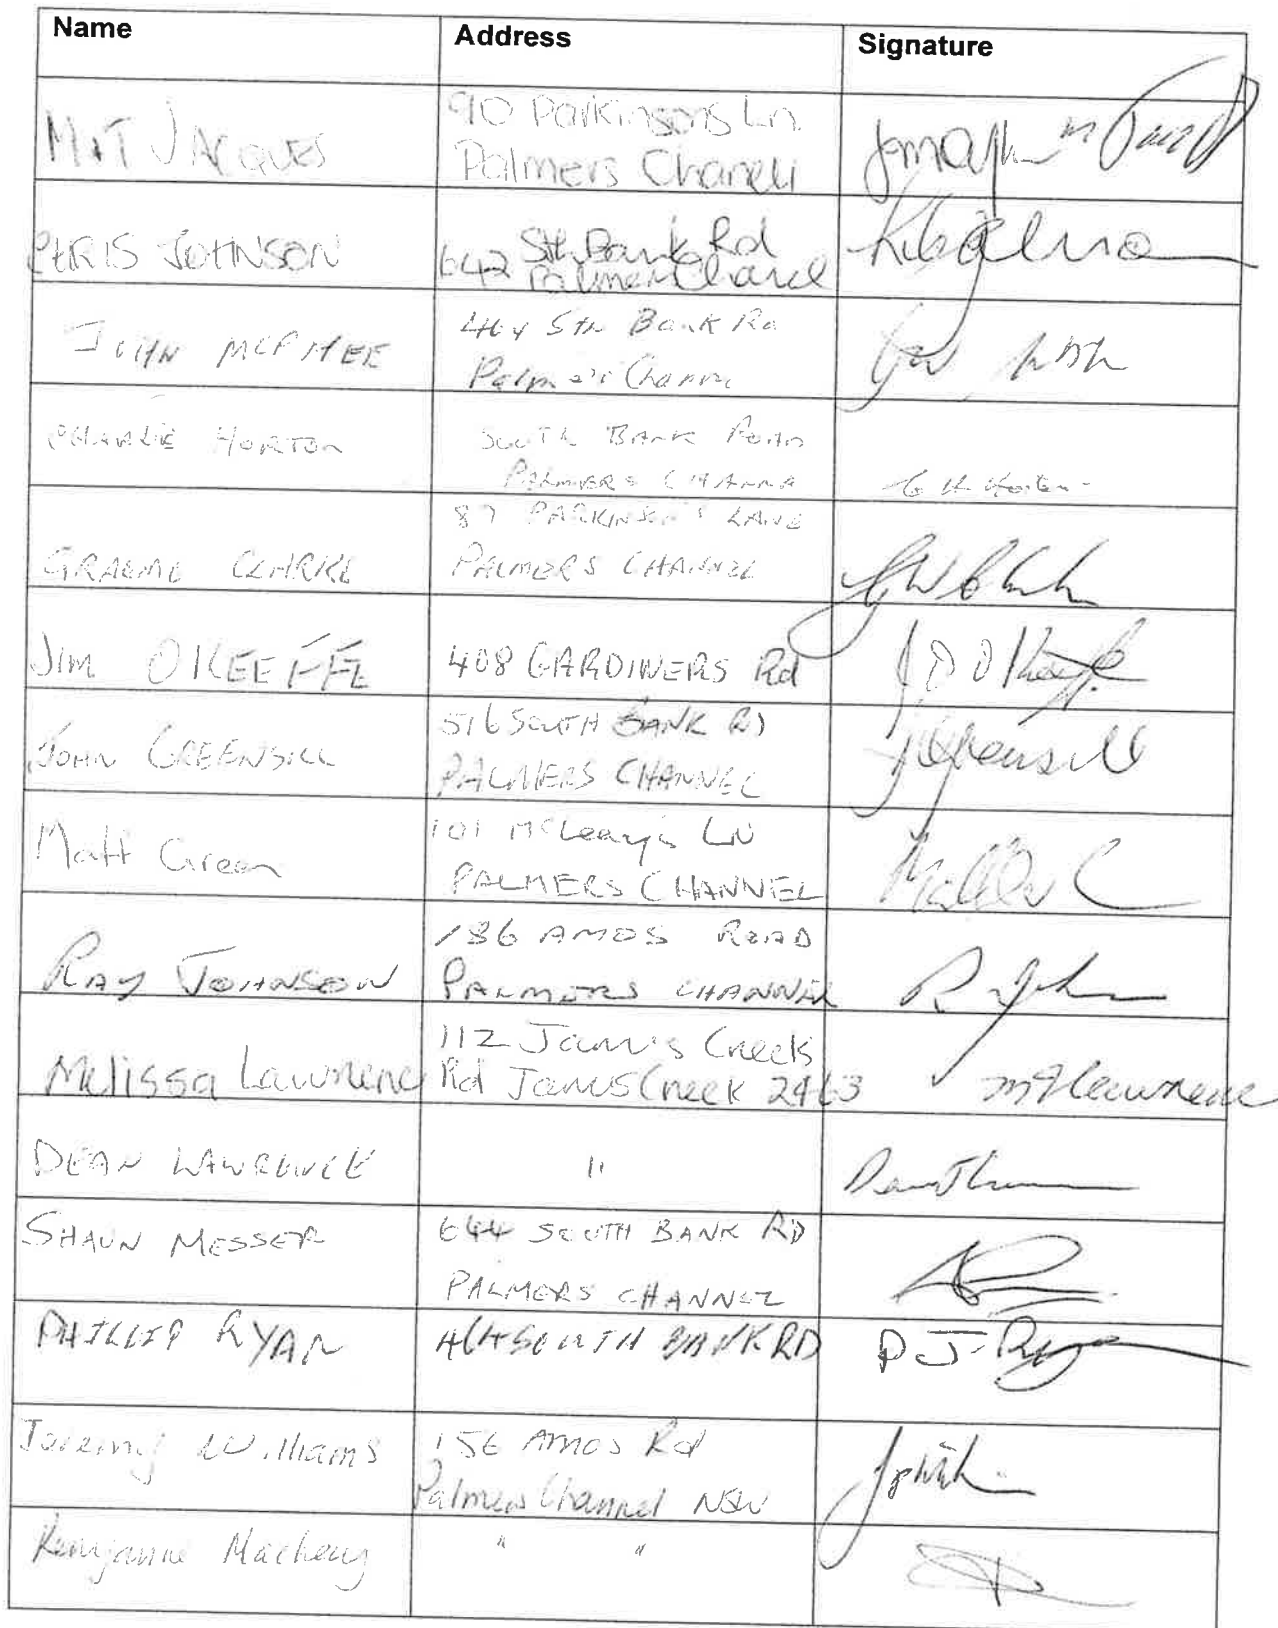 Name Address Signature
MAT JACQUES
90 Parkinsons Ln.
Palmers Chanell
CHRIS JOHNSON
642 Sth Bank Rd
Palmers Chanel
JOHN MCPHEE
464 Sth Bank Rd
Palmers Channe
CHARLIE HORTON
SOUTH BANK ROAD
PALMERS CHANNA
C H Horton
GRAEME CLARKE
87 PARKINSON'S LANE
PALMERS CHANNEL
JIM OKEEFFE
408 GARDINERS Rd
JOHN GREENSILL
516 SOUTH BANK RD
PALMERS CHANNEL
Matt Green
101 McLeay's LN
PALMERS CHANNEL
RAY JOHNSON
186 AMOS ROAD
PALMERS CHANNEL
Melissa Lawrence
112 James Creek
Rd James Creek 2463
DEAN LAWRENCE
"
SHAUN MESSER
644 SOUTH BANK RD
PALMERS CHANNEL
PHILLIP RYAN
464 SOUTH BANK RD
P J Ryan
Jeremy Williams
156 AMOS Rd
Palmers Channel NSW
" "